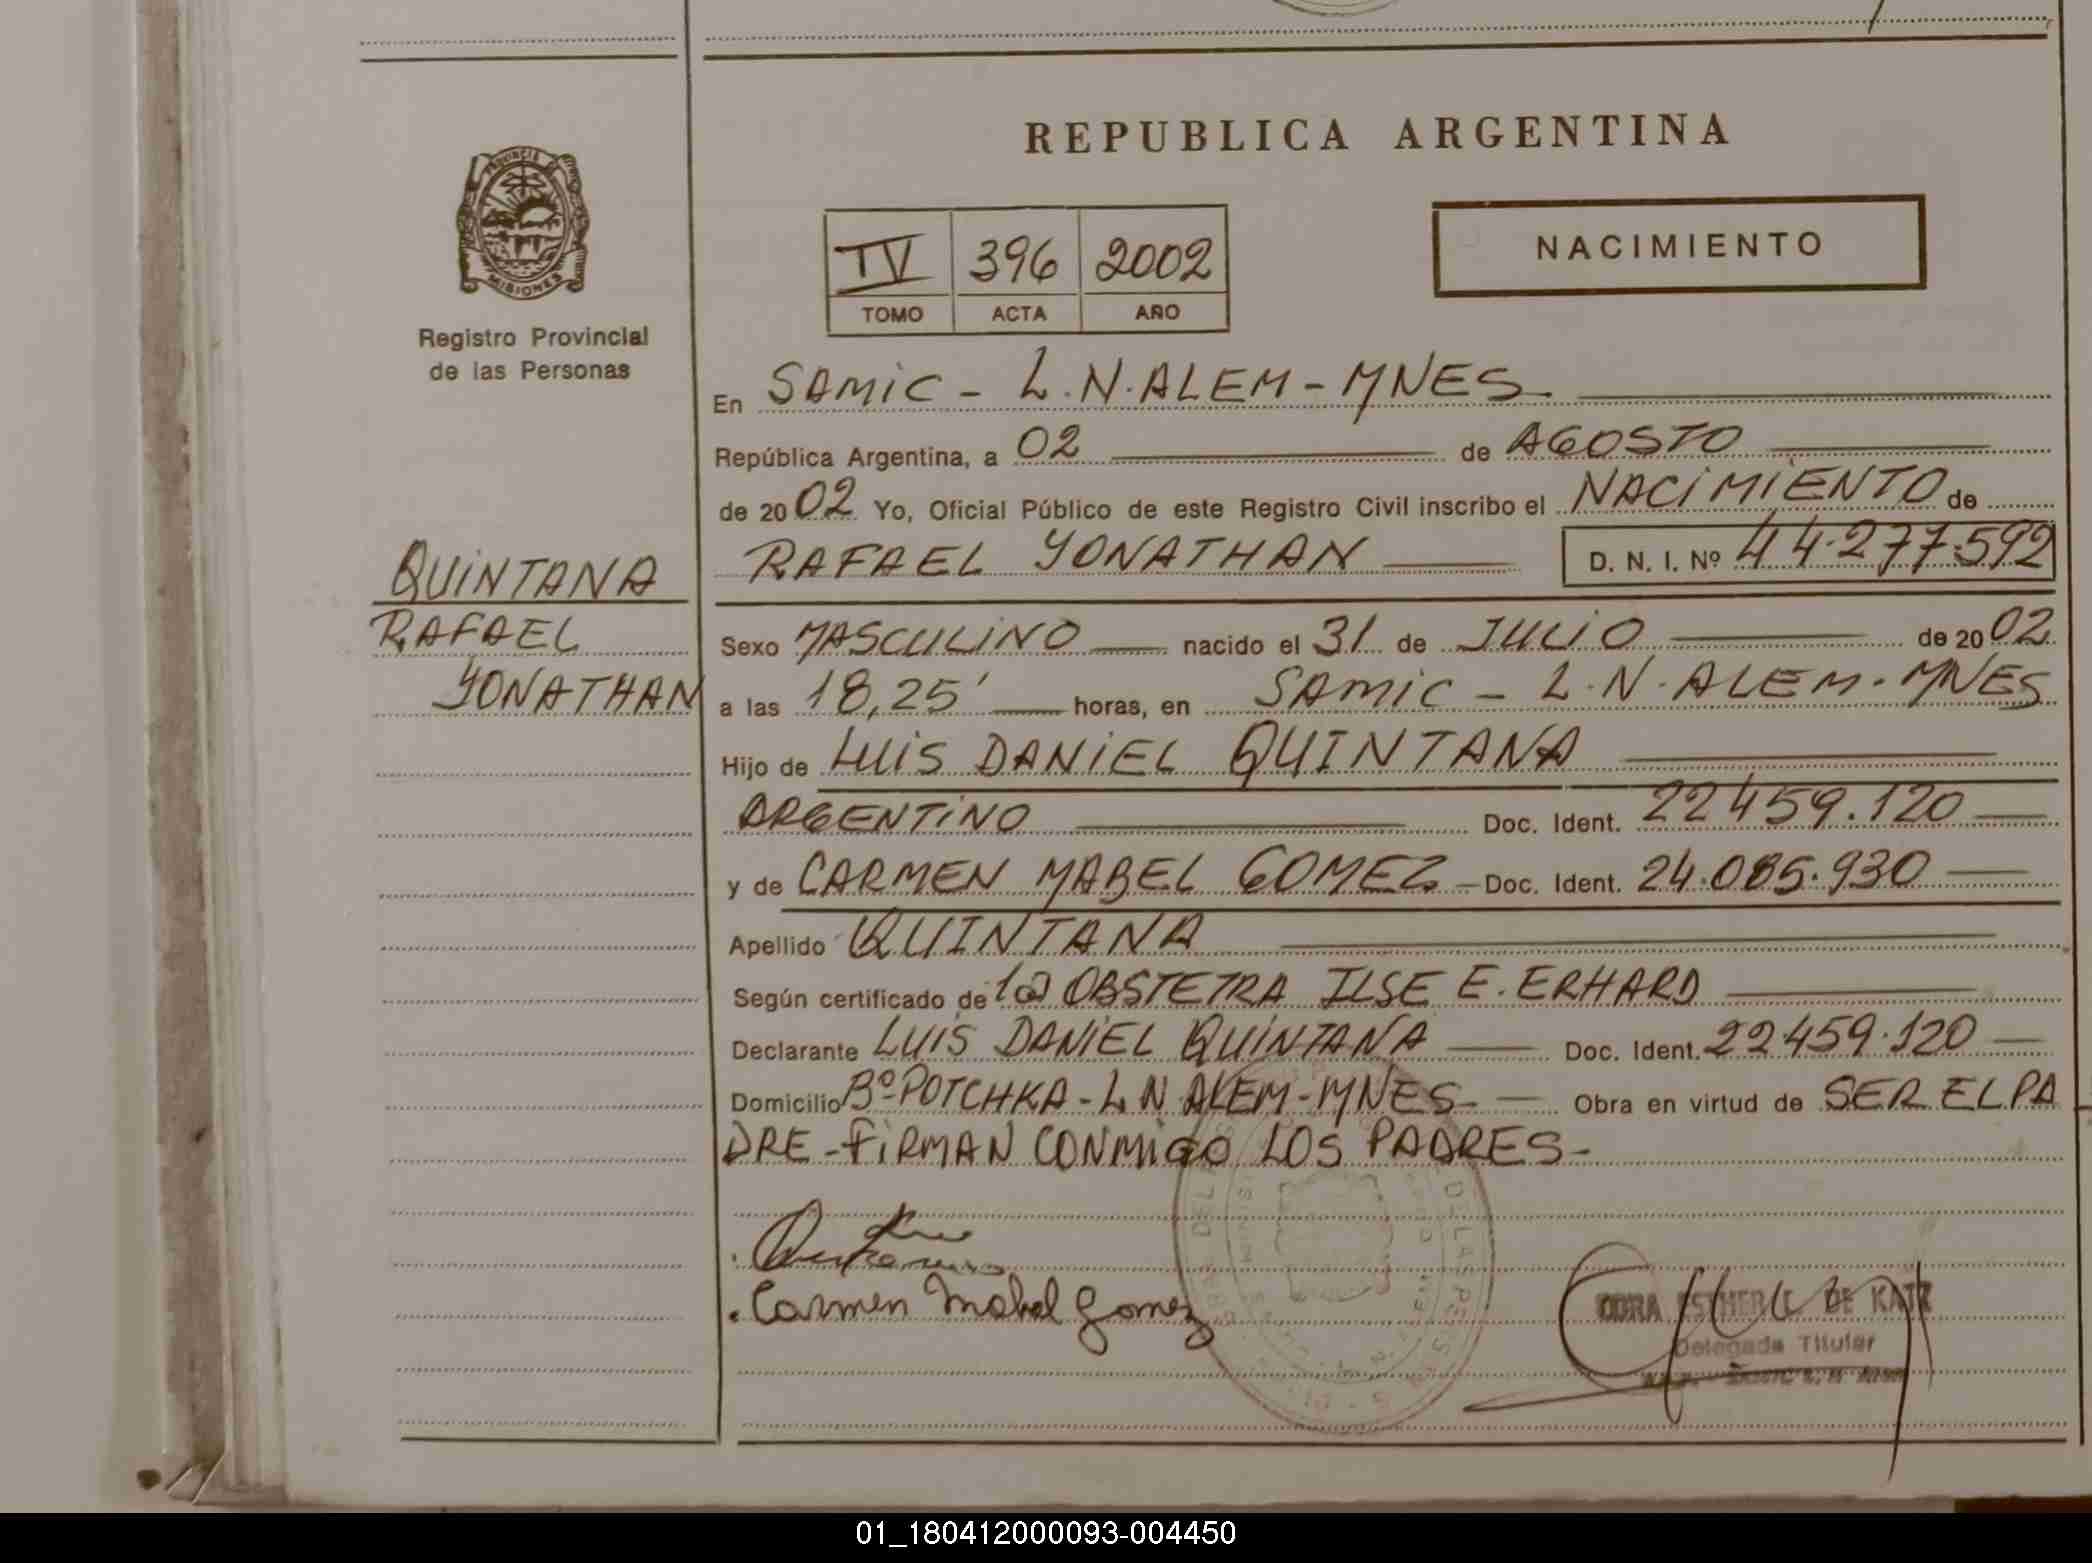 REPUBLICA ARGENTINA
PROVINCIA DE
MISIONES
Registro Provincial
de las Personas
IV 396 2002
TOMO ACTA AÑO
NACIMIENTO
En SAMIC - L.N.ALEM - MNES
República Argentina, a 02 de AGOSTO
de 2002 Yo, Oficial Público de este Registro Civil inscribo el NACIMIENTO de
QUINTANA
RAFAEL
YONATHAN
RAFAEL YONATHAN D. N. I. Nº 44.277.592
Sexo MASCULINO nacido el 31 de JULIO de 2002
a las 18,25' horas, en SAMIC - L.N.ALEM. MNES
Hijo de LUIS DANIEL QUINTANA
ARGENTINO Doc. Ident. 22459.120
y de CARMEN MABEL GOMEZ - Doc. Ident. 24.085.930
Apellido QUINTANA
Según certificado de la OBSTETRA ILSE E. ERHARD
Declarante LUIS DANIEL QUINTANA Doc. Ident. 22459.120
Domicilio Bº POTCHKA - L N ALEM - MNES - Obra en virtud de SER EL PA
DRE - FIRMAN CONMIGO LOS PADRES -
Carmen Mabel Gomez
ESTHER DE KATZ
Delegada Titular
01_180412000093-004450